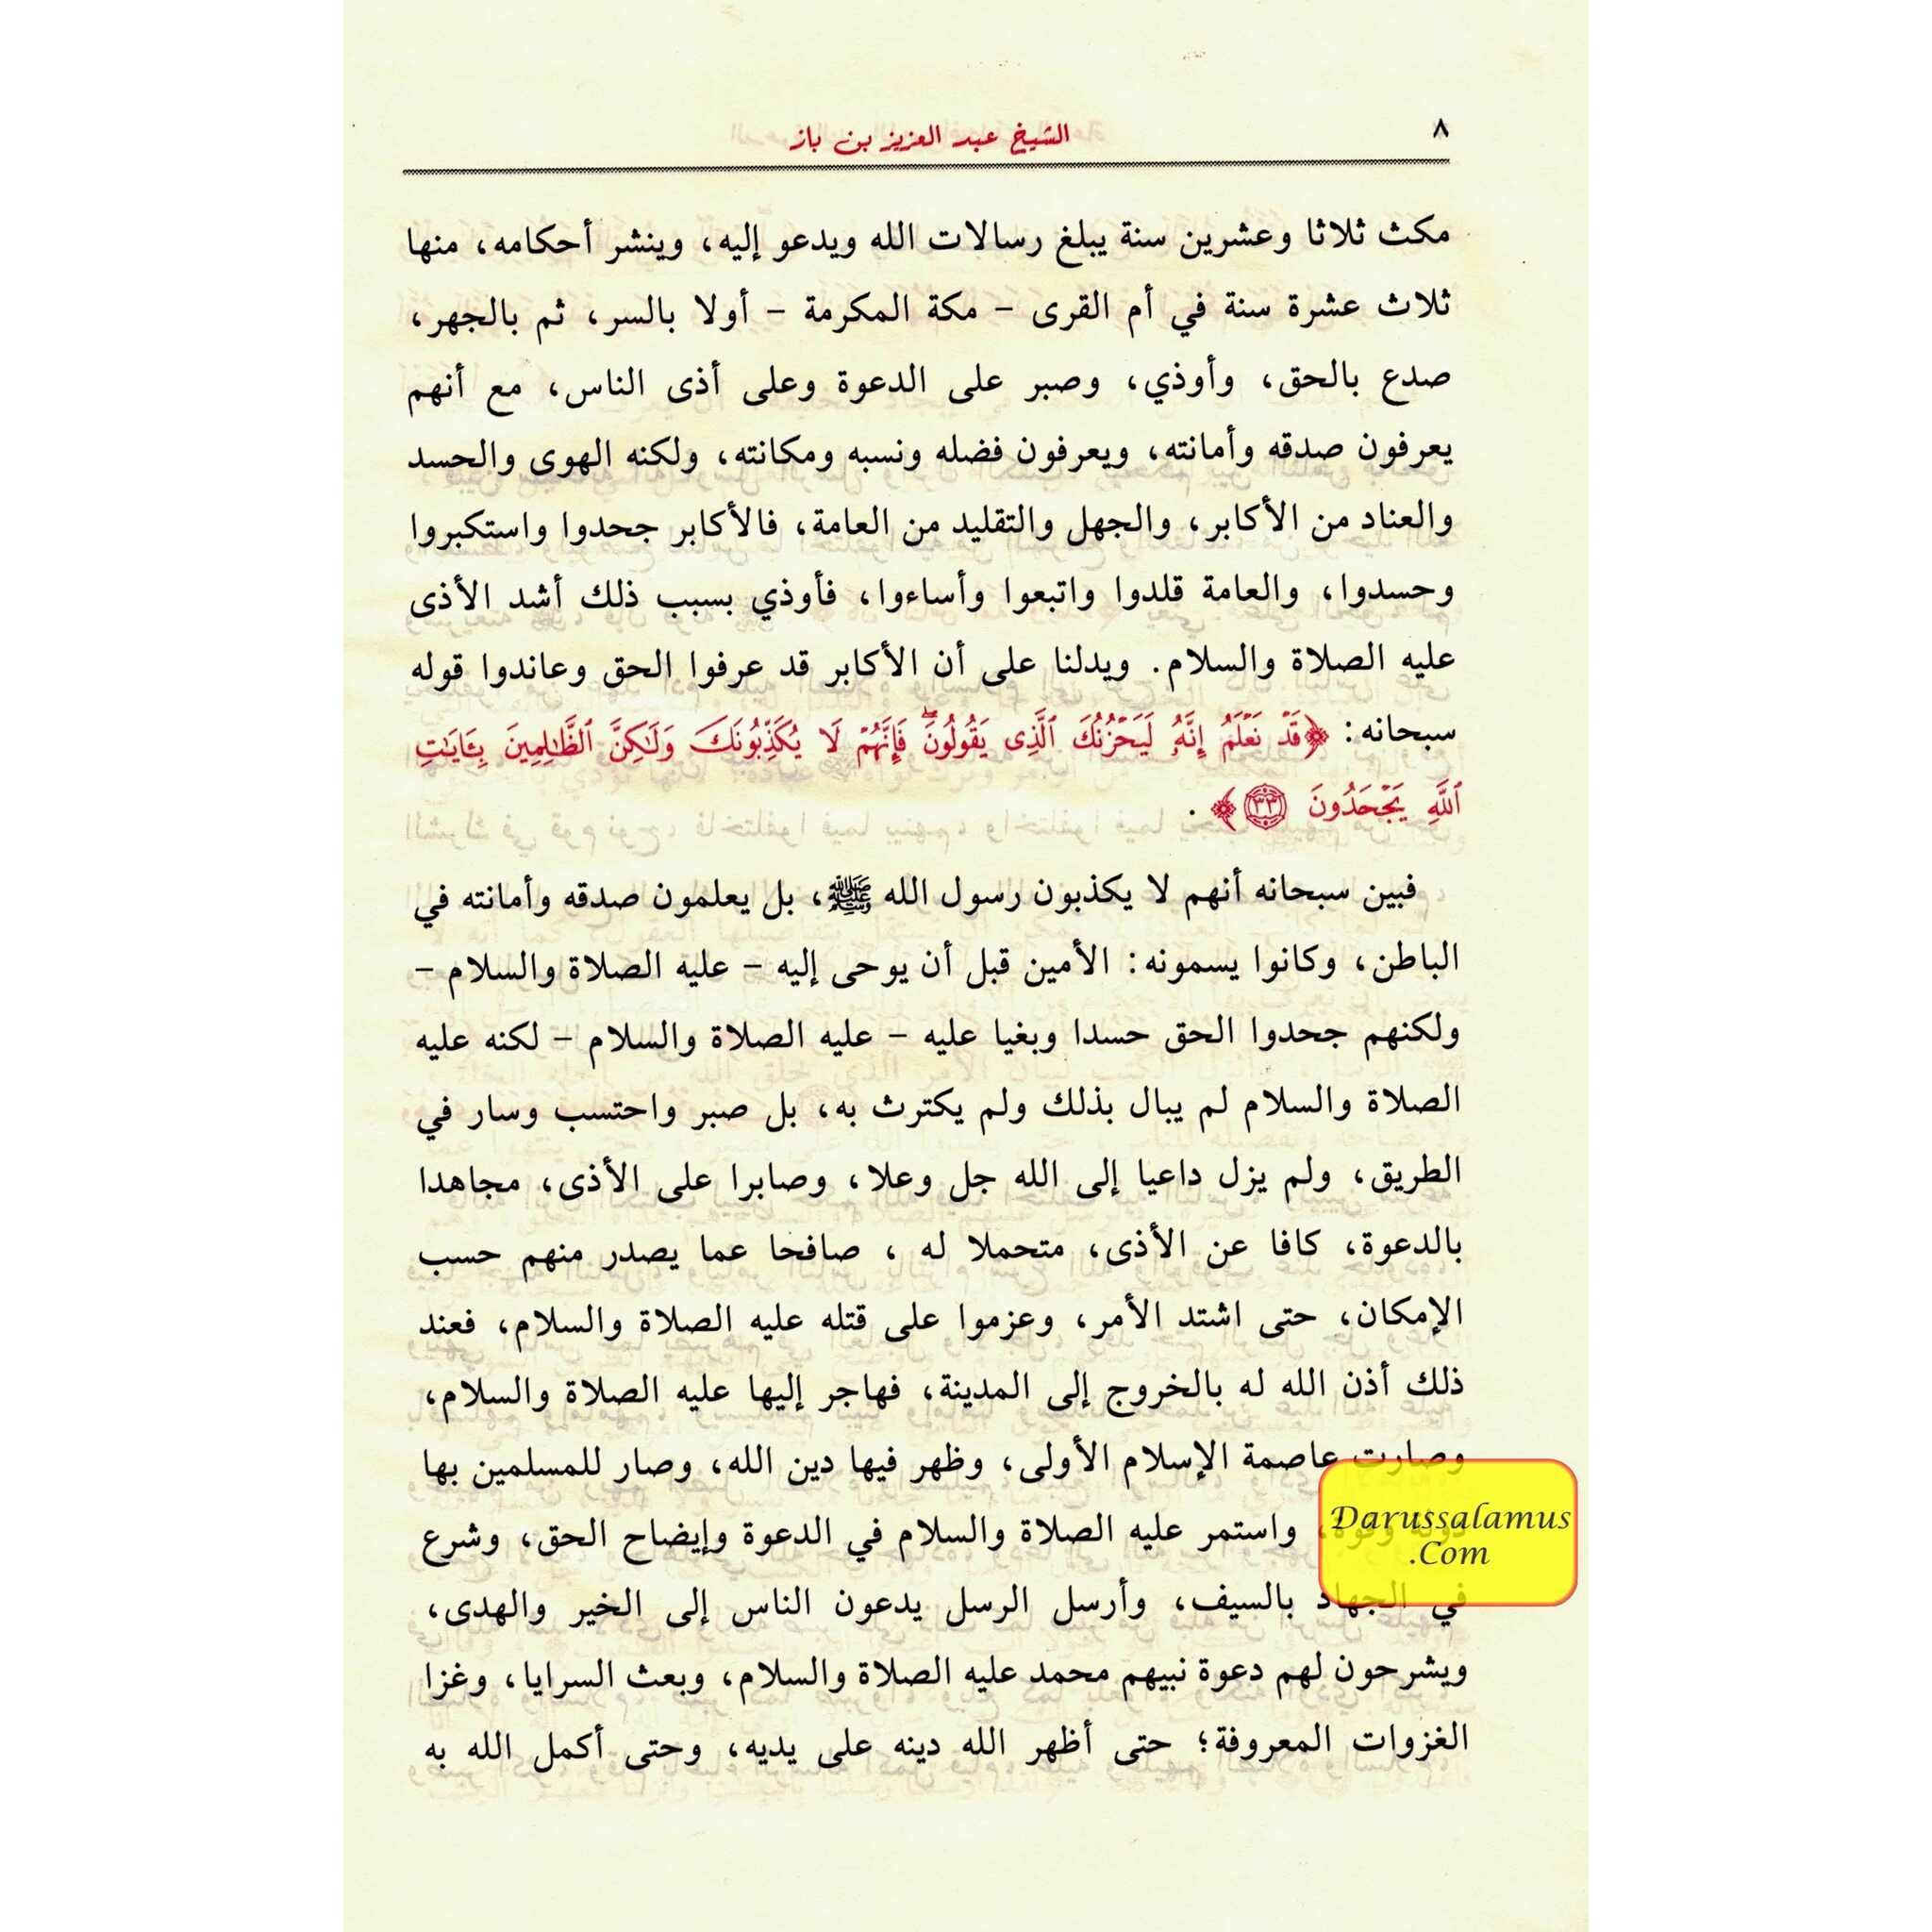 ٨
الشيخ عبد العزيز بن باز
مكث ثلاثا وعشرين سنة يبلغ رسالات الله ويدعو إليه، وينشر أحكامه، منها
ثلاث عشرة سنة في أم القرى – مكة المكرمة – أولا بالسر، ثم بالجهر،
صدع بالحق، وأوذي، وصبر على الدعوة وعلى أذى الناس، مع أنهم
يعرفون صدقه وأمانته، ويعرفون فضله ونسبه ومكانته، ولكنه الهوى والحسد
والعناد من الأكابر، والجهل والتقليد من العامة، فالأكابر جحدوا واستكبروا
وحسدوا، والعامة قلدوا واتبعوا وأساءوا، فأوذي بسبب ذلك أشد الأذى
عليه الصلاة والسلام. ويدلنا على أن الأكابر قد عرفوا الحق وعاندوا قوله
سبحانه: ﴿قَدْ نَعْلَمُ إِنَّهُۥ لَيَحْزُنُكَ ٱلَّذِى يَقُولُونَۖ فَإِنَّهُمْ لَا يُكَذِّبُونَكَ وَلَٰكِنَّ ٱلظَّٰلِمِينَ بِـَٔايَٰتِ
ٱللَّهِ يَجْحَدُونَ ٣٣﴾.
فبين سبحانه أنهم لا يكذبون رسول الله ﷺ، بل يعلمون صدقه وأمانته في
الباطن، وكانوا يسمونه: الأمين قبل أن يوحى إليه – عليه الصلاة والسلام –
ولكنهم جحدوا الحق حسدا وبغيا عليه – عليه الصلاة والسلام – لكنه عليه
الصلاة والسلام لم يبال بذلك ولم يكترث به، بل صبر واحتسب وسار في
الطريق، ولم يزل داعيا إلى الله جل وعلا، وصابرا على الأذى، مجاهدا
بالدعوة، كافا عن الأذى، متحملا له ، صافحا عما يصدر منهم حسب
الإمكان، حتى اشتد الأمر، وعزموا على قتله عليه الصلاة والسلام، فعند
ذلك أذن الله له بالخروج إلى المدينة، فهاجر إليها عليه الصلاة والسلام،
وصارت عاصمة الإسلام الأولى، وظهر فيها دين الله، وصار للمسلمين بها
دولة وقوة، واستمر عليه الصلاة والسلام في الدعوة وإيضاح الحق، وشرع
في الجهاد بالسيف، وأرسل الرسل يدعون الناس إلى الخير والهدى،
ويشرحون لهم دعوة نبيهم محمد عليه الصلاة والسلام، وبعث السرايا، وغزا
الغزوات المعروفة؛ حتى أظهر الله دينه على يديه، وحتى أكمل الله به
Darussalamus
.Com